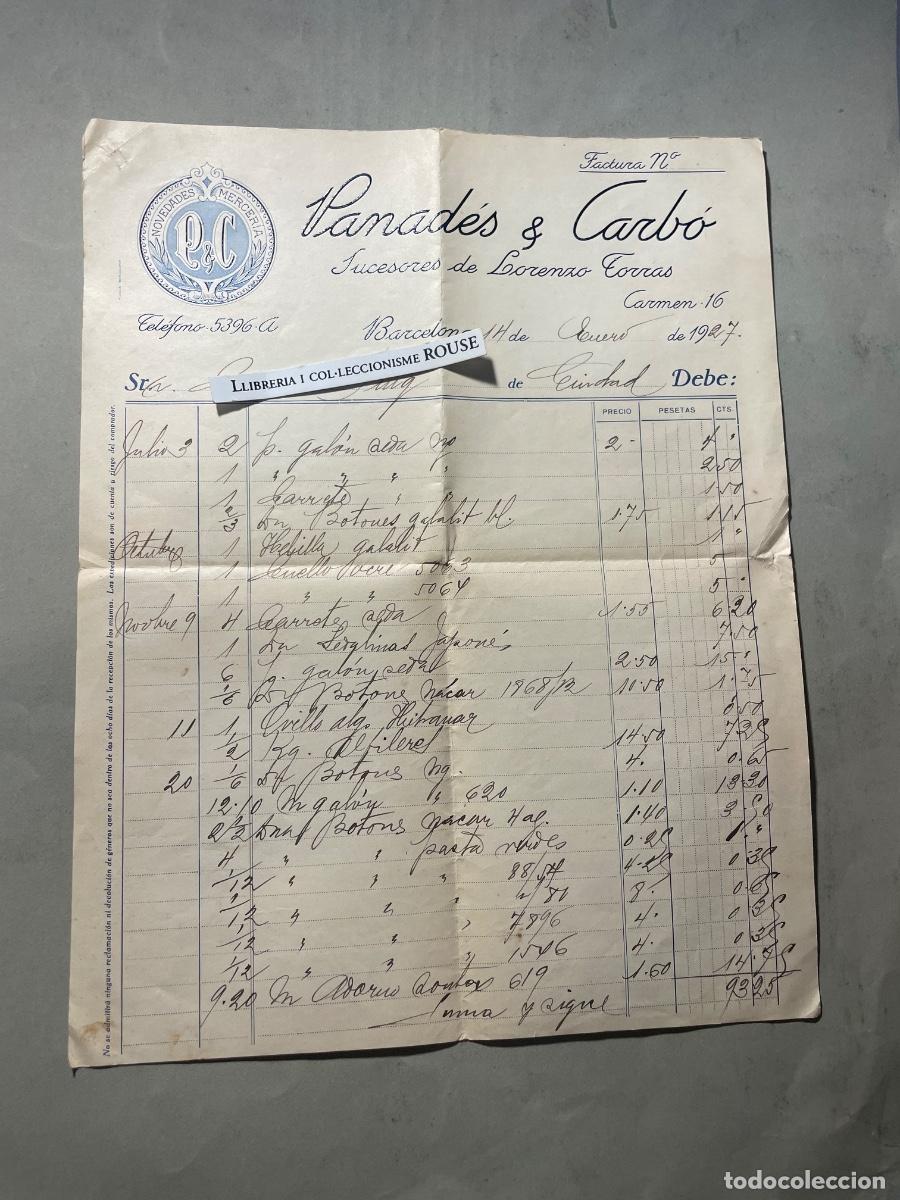 Factura Nº
NOVEDADES MERCERÍA
P&C
Panadés & Carbó
Sucesores de Lorenzo Torras
Carmen-16
Teléfono-5396-A
Barcelona 14 de Enero de 1927.
LLIBRERIA I COL·LECCIONISME ROUSE
Sra. Puig de Ciudad Debe:
PRECIO PESETAS CTS.
Julio 3 2 p. galón seda ngo 2- 4 "
1 " " " " 2 50
1 Carrete " " 1 50
2/3 Dn Botones galalit bl. 1.75 1 15
Octubre 1 Hebilla galalit 1 "
1 Cuello ocre 5063 5
1 " " 5064 5 "
Novbre 9 4 Carretes seda 1.55 6.20
1 Dn Japonés 7.50
6 p. galón seda 2.50 15 "
1/6 Dn Botone Nácar 1968/12 10.50 1.75
11 1 Ovillo alg. 0.50
1/2 Kg. Alfileres 14.50 7 25
20 1/6 Dn Botons ng. 4. 0.65
12.10 M galón " 620 1.10 13.30
2 1/2 Dna Botons nacar 4 ag. 1.40 3.50
4 " " pasta verdes 0.25 1. "
1/12 " " " 88/54 4.25 0.35
1/12 " " " "/80 8. 0.65
1/12 " " " 7896 4. 0.35
1/12 " " " 1546 4. 0.35
9.20 M Adorno 619 1.60 14.75
Suma y sigue 93 25
No se admitirá ninguna reclamación ni devolución de géneros que no sea dentro de los ocho días de la recepción de los mismos. Las expediciones son de cuenta y riesgo del comprador.
todocoleccion